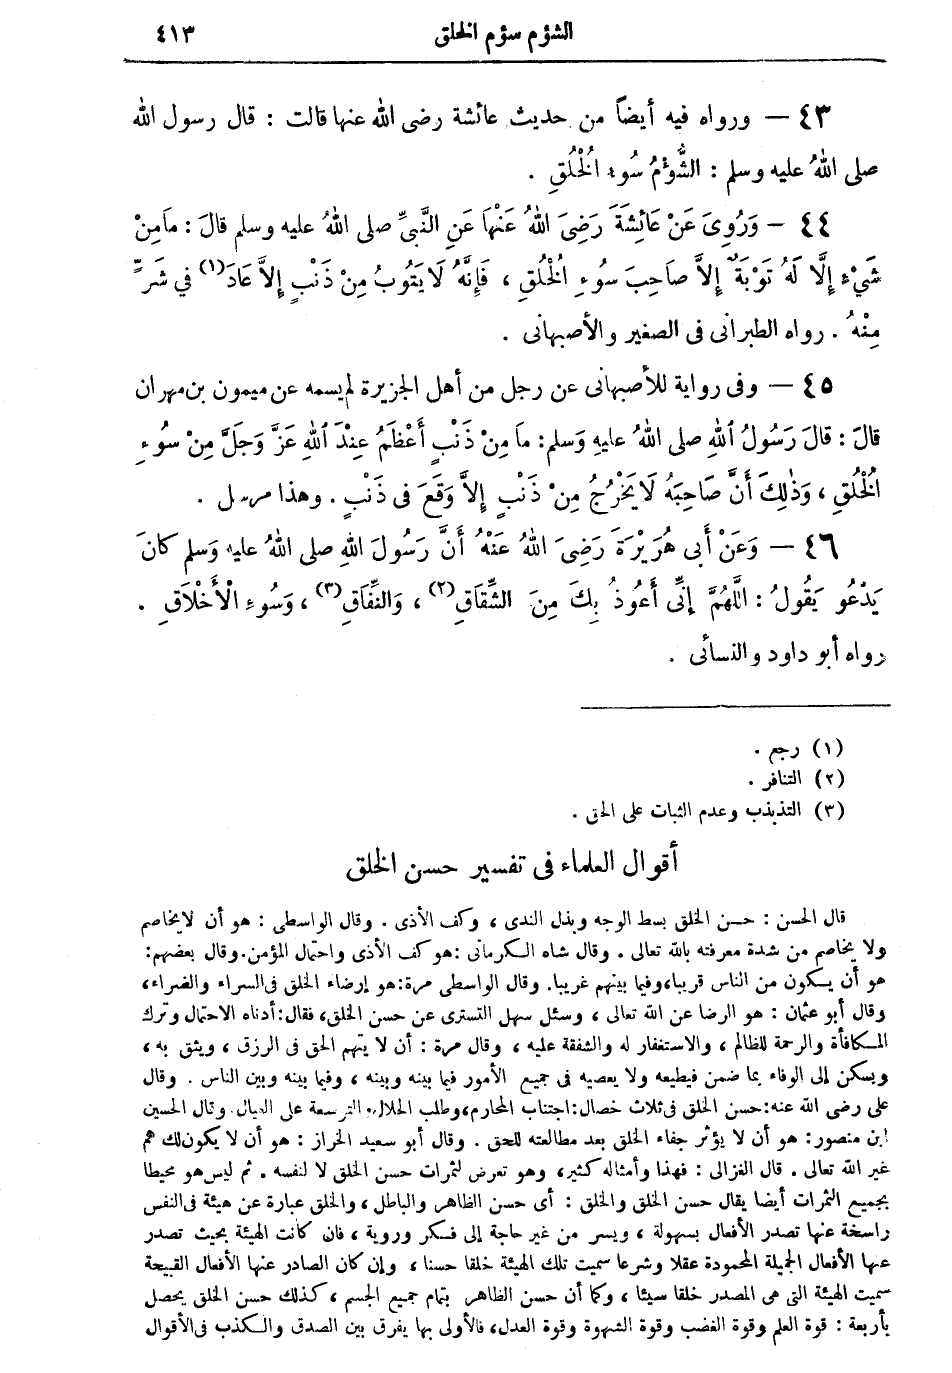 الشؤم سوء الخلق ٤١٣
٤٣ — ورواه فيه أيضاً من حديث عائشة رضى الله عنها قالت : قال رسول الله
صلى اللهُ عليه وسلم : الشُّؤمُ سُوء الْخُلُقِ .
٤٤ — وَرُوِىَ عَنْ عَائِشَةَ رَضِىَ اللهُ عَنْهَا عَنِ النَّبىِّ صلى اللهُ عليه وسلم قالَ : مَامِنْ
شَيْءٍ إِلَّا لَهُ تَوْبَةٌ إِلاَّ صَاحِبَ سُوءِ الْخُلُقِ ، فَإِنَّهُ لَا يَتُوبُ مِنْ ذَنْبٍ إِلاَّ عَادَ(١) في شَرٍّ
مِنْهُ . رواه الطبرانى فى الصغير والأصبهانى .
٤٥ — وفى رواية للأصبهانى عن رجل من أهل الجزيرة لم يسمه عن ميمون بن مهران
قالَ : قالَ رَسُولُ اللهِ صلى اللهُ عليهِ وَسلم: مَا مِنْ ذَنْبٍ أَعْظَمُ عِنْدَ اللهِ عَزَّ وَجَلَّ مِنْ سُوءِ
الْخُلُقِ ، وَذٰلِكَ أَنَّ صَاحِبَهُ لَا يَخْرُجُ مِنْ ذَنْبٍ إِلاَّ وَقَعَ فى ذَنْبٍ . وهذا مرسل .
٤٦ — وَعَنْ أَبى هُرَيْرَةَ رَضِىَ اللهُ عَنْهُ أَنَّ رَسُولَ اللهِ صلى اللهُ عليهِ وَسلم كانَ
يَدْعُو يَقُولُ : اللَّهُمَّ إِنِّى أَعُوذُ بِكَ مِنَ الشِّقَاقِ(٢) ، وَالنِّفَاقِ(٣) ، وَسُوءِ الْأَخْلَاقِ .
رواه أبو داود والنسائى .
(١) رجع .
(٢) التنافر .
(٣) التذبذب وعدم الثبات على الحق .
أقوال العلماء فى تفسير حسن الخلق
قال الحسن : حسن الخلق بسط الوجه وبذل الندى ، وكف الأذى . وقال الواسطى : هو أن لا يخاصم
ولا يخاصم من شدة معرفته بالله تعالى . وقال شاه الكرمانى :هو كف الأذى واحتمال المؤمن.وقال بعضهم:
هو أن يكون من الناس قريبا،وفيما بينهم غريبا. وقال الواسطى مرة:هو إرضاء الخلق فى السراء والضراء،
وقال أبو عثمان : هو الرضا عن الله تعالى ، وسئل سهل التسترى عن حسن الخلق، فقال:أدناه الاحتمال وترك
المكافأة والرحمة للظالم ، والاستغفار له والشفقة عليه ، وقال مرة : أن لا يتهم الحق فى الرزق ، ويثق به ،
ويسكن إلى الوفاء بما ضمن فيطيعه ولا يعصيه فى جميع الأمور فيما بينه وبينه ، وفيما بينه وبين الناس . وقال
على رضى الله عنه:حسن الخلق فى ثلاث خصال:اجتناب المحارم،وطلب الحلال، والتوسعة على العيال. وقال الحسين
ابن منصور: هو أن لا يؤثر جفاء الخلق بعد مطالعته للحق . وقال أبو سعيد الخراز : هو أن لا يكون لك هم
غير الله تعالى . قال الغزالى : فهذا وأمثاله كثير، وهو تعرض لثمرات حسن الخلق لا لنفسه . ثم ليس هو محيطا
بجميع الثمرات أيضا يقال حسن الخلق والخلق : أى حسن الظاهر والباطل ، والخلق عبارة عن هيئة فى النفس
راسخة عنها تصدر الأفعال بسهولة ، ويسر من غير حاجة إلى فكر وروية ، فان كانت الهيئة بحيث تصدر
عنها الأفعال الجميلة المحمودة عقلا وشرعا سميت تلك الهيئة خلقا حسنا ، وإن كان الصادر عنها الأفعال القبيحة
سميت الهيئة التى هى المصدر خلقا سيئا ، وكما أن حسن الظاهر بتمام جميع الجسم ، كذلك حسن الخلق يحصل
بأربعة : قوة العلم وقوة الغضب وقوة الشهوة وقوة العدل، فالأولى بها يفرق بين الصدق والكذب فى الأقوال